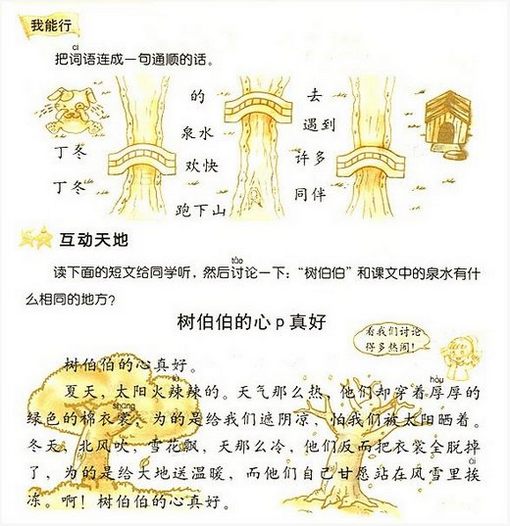 我能行
cí
把词语连成一句通顺的话。
丁冬
丁冬
的
泉水
欢快
跑下山
去
遇到
许多
同伴
互动天地
tǎo
读下面的短文给同学听，然后讨论一下：“树伯伯”和课文中的泉水有什
么相同的地方？
树伯伯的心p真好
看我们讨论
得多热闹！
树伯伯的心真好。
hòu
夏天，太阳火辣辣的。天气那么热，他们却穿着厚厚的
shang
绿色的棉衣裳，为的是给我们遮阴凉，怕我们被太阳晒着。
冬天，北风吹，雪花飘，天那么冷，他们反而把衣裳全脱掉
ái
了，为的是给大地送温暖，而他们自己甘愿站在风雪里挨
冻。啊！树伯伯的心真好。